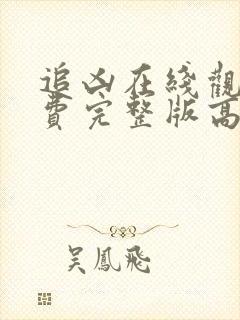 追凶在綫觀
費完整版高
吳鳳飛